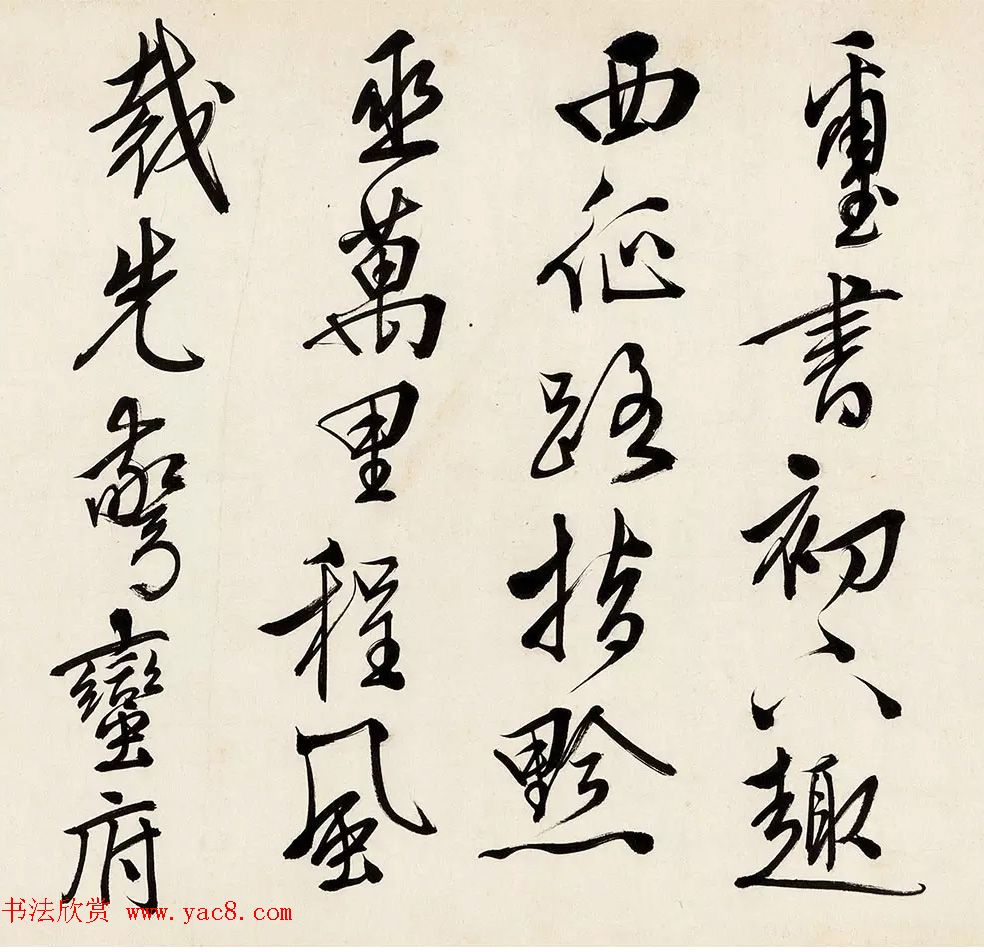 璽書初下趣
西征路指黔
巫萬里程風
裁先驚蠻府
书法欣赏 www.yac8.com